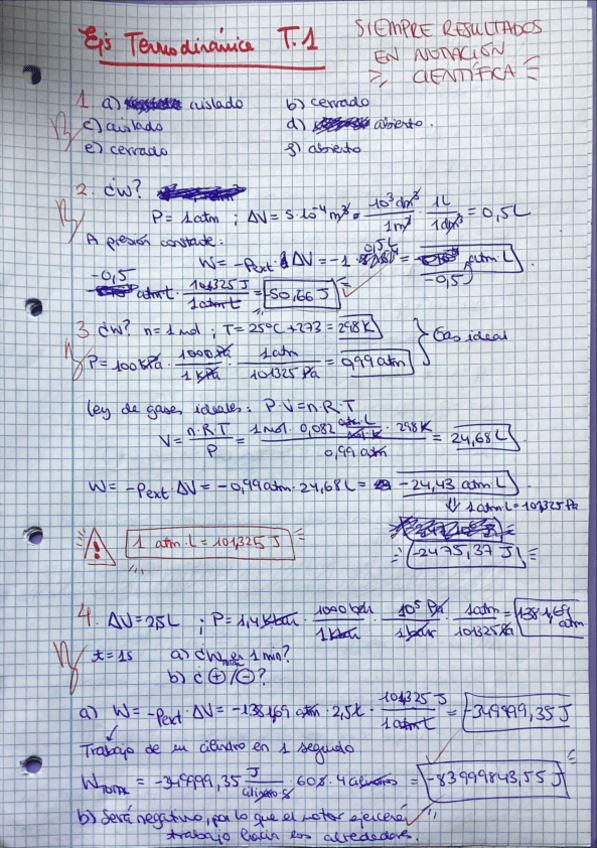 Ejs Termodinámica T.1
SIEMPRE RESULTADOS
EN NOTACIÓN
CIENTÍFICA
1. a) aislado b) cerrado
c) aislado d) abierto.
e) cerrado f) abierto
2. ¿W?
P = 1atm ; ΔV = 5·10⁻⁴ m³ · 10³dm³/1m³ · 1L/1dm³ = 0,5L
A presión constante:
W = -Pext ΔV = -1 · 0,5L = -0,5 atm·L
-0,5 atm·L · 101325J/1atm·L = -50,66 J
3. ¿W? n = 1 mol ; T = 25°C + 273 = 298K
Gas ideal
P = 100kPa · 1000Pa/1kPa · 1atm/101325Pa = 0,99 atm
Ley de gases ideales: P·V = n·R·T
V = n·R·T/P = 1mol · 0,082 atm·L/mol·K · 298K/0,99 atm = 24,68L
W = -Pext ΔV = -0,99 atm · 24,68L = -24,43 atm·L
⇓ 1 atm·L = 101,325 Pa
-2475,37 J
1 atm·L = 101,325 J
4. ΔV = 2,5L ; P = 1,4kbar · 1000bar/1kbar · 10⁵Pa/1bar · 1atm/101325Pa = 1381,69 atm
t = 1s a) ¿W en 1 min?
b) ¿⊕/⊖?
a) W = -Pext · ΔV = -1381,69 atm · 2,5L · 101,325 J/1atm·L = -349999,35 J
Trabajo de un cilindro en 1 segundo
Wtotal = -349999,35 J/cilindro·s · 60s · 4 cilindros = -83999843,55 J
b) Será negativo, por lo que el motor ejercerá
trabajo hacia los alrededores.